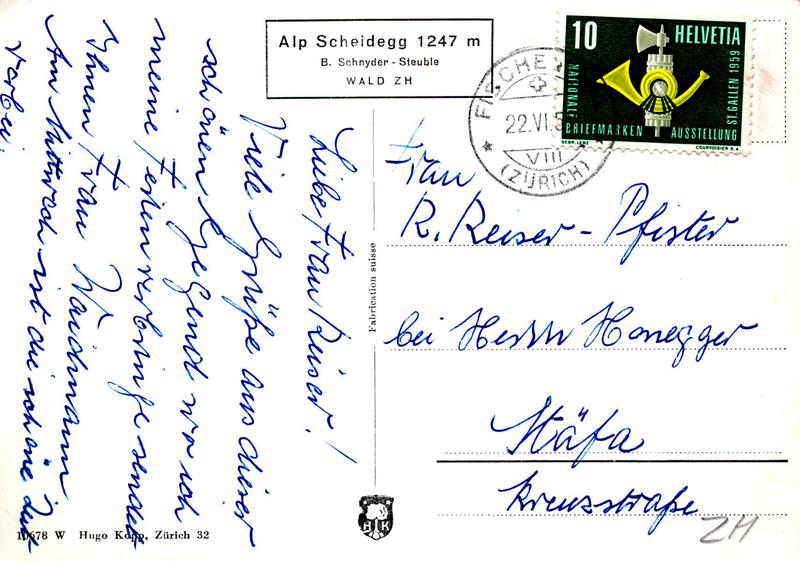 Alp Scheidegg 1247 m
B. Schnyder - Steuble
WALD ZH
10
HELVETIA
NATIONALE
BRIEFMARKEN
AUSSTELLUNG
ST. GALLEN 1959
GEBR. LENZ
COURVOISIER S.A.
FISCHE
22.VI.5
VIII
(ZÜRICH)
Liebe Frau Reiser!
Viele Grüße aus dieser
schönen Gegend wo ich
meine Ferien verbringe sendet
Ihnen Frau Waidmann
Am Mittwoch ist die schöne Zeit
vorbei.
Fabrication suisse
Frau
R. Reiser-Pfister
bei Herrn Honegger
Stäfa
Kreuzstraße
ZH
HK
10678 W Hugo Kopp, Zürich 32